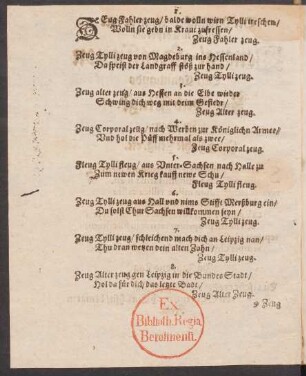 1.
Eug Fahler zeug/ balde wolln wirn Tylli treschen/
Wolln sie gehn in Kraut zufressen/
Zeug Fahler zeug.
2.
Zeug Tylli zeug von Magdeburg ins Hessenland/
Da spreist der Landgraff stöst zur hand/
Zeug Tyll zeug.
3.
Zeug alter zeug/ aus Hessen an die Elbe wieder
Schwing dich weg mit deim Gefiede/
Zeug Alter zeug.
4.
Zeug Corporal zeug/ nach Werben zur Königlichn Armee/
Und hol die Püff mehrmal als zwee/
Zeug Corporal zeug.
5.
Fleug Tylli fleug/ aus Unter-Sachsen nach Halle zu
Zum newen Krieg kauff newe Schu/
Fleug Tylli fleug.
6.
Zeug Tylli zeug aus Hall und nims Stifft Merßburg ein/
Du solst Chur Sachsen willkommen seyn/
Zeug Tylli zeug.
7.
Zeug Tylli zeug/ schleichend mach dich an Leipzig nan/
Thu dran wetzen dein alten Zahn/
Zeug Tylli zeug.
8.
Zeug Alter zeug gen Leipzig in die Bundes Stadt/
Hol da für dich das letzte Badt/
Zeug Alter Zeug.
9 Zeug
Ex
Biblioth. Regia
Berolinensi.